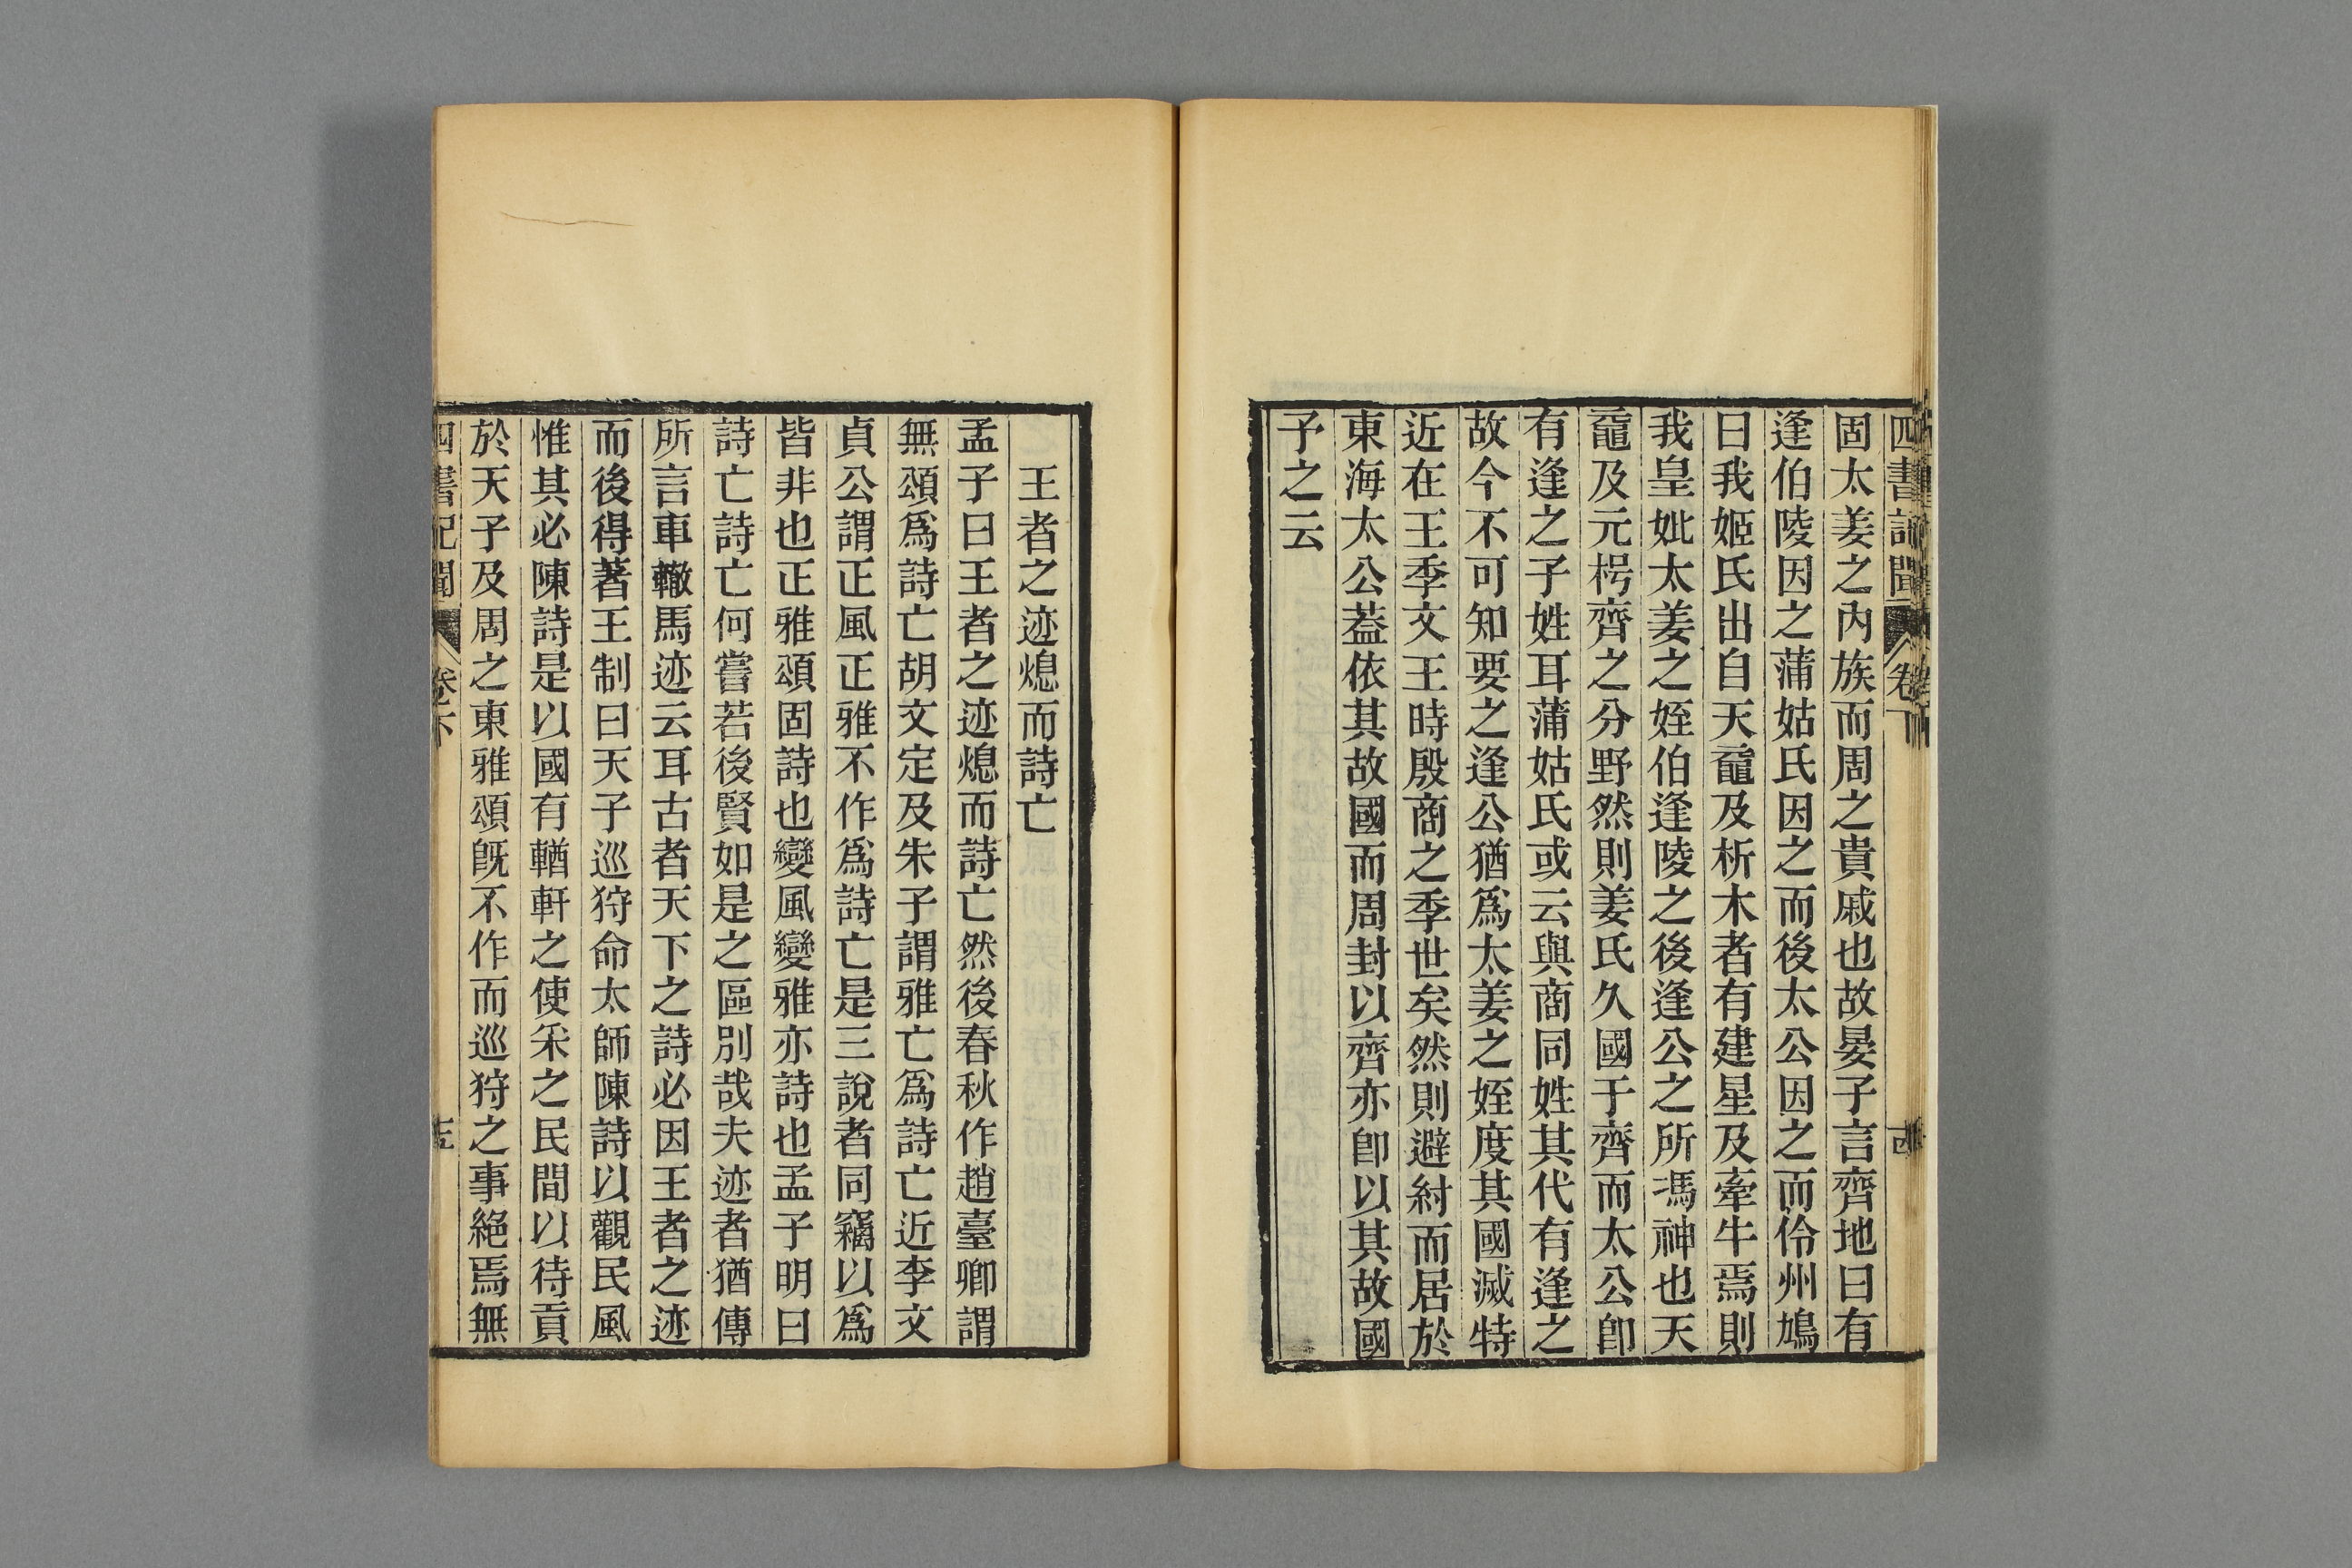 四書記聞 卷下
固太姜之內族而周之貴戚也故晏子言齊地曰有
逄伯陵因之蒲姑氏因之而後太公因之而伶州鳩
曰我姬氏出自天黿及析木者有建星及牽牛焉則
我皇妣太姜之姪伯逄陵之後逄公之所馮神也天
黿及元枵齊之分野然則姜氏久國于齊而太公卽
有逄之子姓耳蒲姑氏或云與商同姓其代有逄之
故今不可知要之逄公猶爲太姜之姪度其國滅特
近在王季文王時殷商之季世矣然則避紂而居於
東海太公葢依其故國而周封以齊亦卽以其故國
予之云
王者之迹熄而詩亡
孟子曰王者之迹熄而詩亡然後春秋作趙臺卿謂
無頌爲詩亡胡文定及朱子謂雅亡爲詩亡近李文
貞公謂正風正雅不作爲詩亡是三說者同竊以爲
皆非也正雅頌固詩也變風變雅亦詩也孟子明曰
詩亡詩亡何嘗若後賢如是之區別哉夫迹者猶傳
所言車轍馬迹云耳古者天下之詩必因王者之迹
而後得著王制曰天子巡狩命太師陳詩以觀民風
惟其必陳詩是以國有輶軒之使采之民間以待貢
於天子及周之東雅頌旣不作而巡狩之事絕焉無
四書記聞 卷下